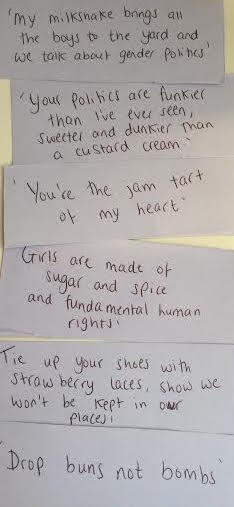 'My milkshake brings all
the boys to the yard and
we talk about gender politics'
'Your politics are funkier
than I've ever seen,
sweeter and dunkier than
a custard cream.'
'You're the jam tart
of my heart'
'Girls are made of
sugar and spice
and fundamental human
rights'
'Tie up your shoes with
strawberry laces, show we
won't be kept in our
places!
'Drop buns not bombs'